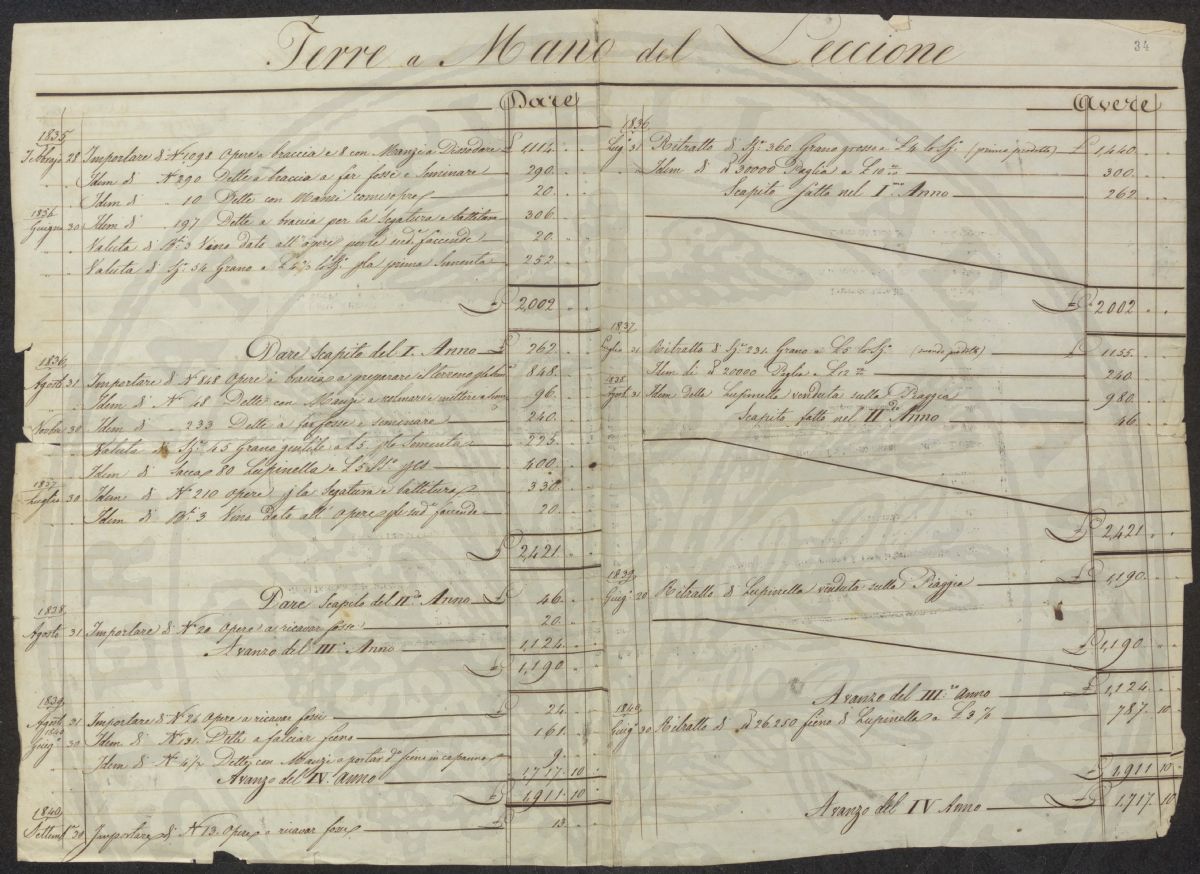 34
Terre a Mano del Leccione
Dare
1835
Febbrajo 28 Importare di N° 1098 Opere a braccia e 8 con Manzi a Dissodare £ 1114
Idem di N° 290 Dette a braccia a far fosse e Seminare 290
Idem di 10 Dette con Manzi 20
1836
Giugno 30 Idem di 197 Dette a braccia per la Segatura e battitura 306
Valuta di Bi. 3 Vino dato all'opere 20
Valuta di Sj. 54 Grano a la prima Sementa 252
£ 2,002
Dare Scapito del I. Anno £ 262
1836
Agosto 31 Importare di N° 848 Opere a braccia a preparare 848
Idem di N° 48 Dette con Manzi a 96
30 Idem di 233 Dette a far fosse e seminare 240
Valuta di Sj. 45 Grano gentile a £ 5 Sementa 225
Idem di Sacca 80 Lupinella a £ 5 400
1837
Luglio 30 Idem di N° 210 Opere la Segatura e battitura 330
Idem di Bi. 3 Vino Dato all'Opere faccende 20
£ 2,421
Dare Scapito del II. Anno £ 46
1838
Agosto 31 Importare di N° 20 Opere a ricavar fosse 20
Avanzo del III. Anno 1,124
£ 1,190
1839
Agosto 31 Importare di N° 24 Opere a ricavar fosse £ 24
1840
Giug. 30 Idem di N° 131 Dette a falciar fieno 161
Idem di N° 4/2 Dette con Manzi a portar fieno in capanna 9
Avanzo del IV. Anno 1,717 10
£ 1,911 10
1840
Settemb. 30 Importare di N° 13 Opere a ricavar fosse £ 13
Avere
1836
Lug. 31 Ritratto di Sj. 360 Grano grosso a £ 4 lo Sj. (primo prodotto) £ 1,440
Idem di 30000 Paglia a £ 10 300
Scapito fatto nel I. Anno 262
£ 2002
1837
Luglio 31 Ritratto di Sj. 231 Grano a £ 5 lo Sj. (secondo prodotto) £ 1155
Idem di 20000 Paglia a £ 12 240
1838
Agost. 31 Idem della Lupinella venduta sulla Piaggia 980
Scapito fatto nel II. Anno 46
£ 2,421
1839
Giug. 20 Ritratto di Lupinella venduta sulla Piaggia £ 1,190
£ 1,190
Avanzo del III. Anno £ 1,124
1840
Giug. 30 Ritratto di 26.250 fieno di Lupinella a £ 3 % 787 10
£ 1,911 10
Avanzo del IV Anno £ 1,717 10